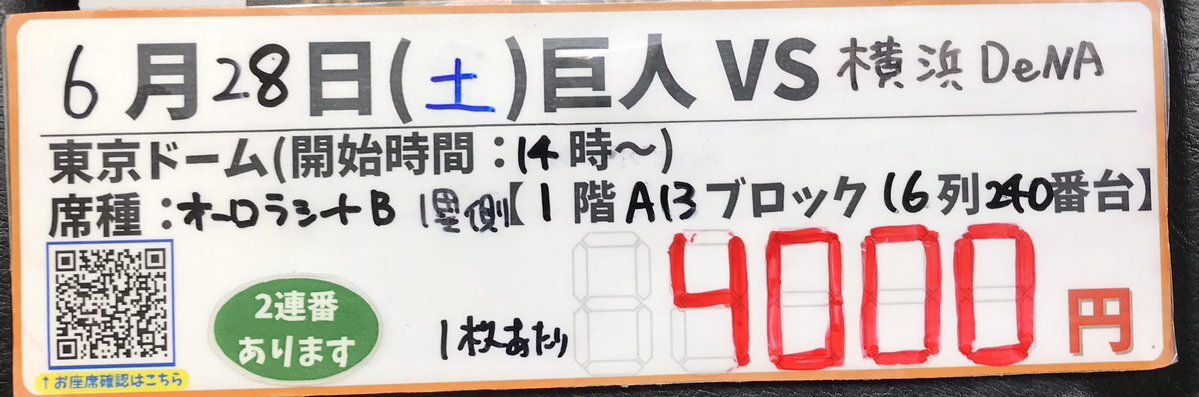 6月28日(土)巨人 VS 横浜DeNA
東京ドーム(開始時間：14時～)
席種：オーロラシートB 1塁側【1階A13ブロック16列240番台】
2連番
あります
1枚あたり
4000円
↑お座席確認はこちら